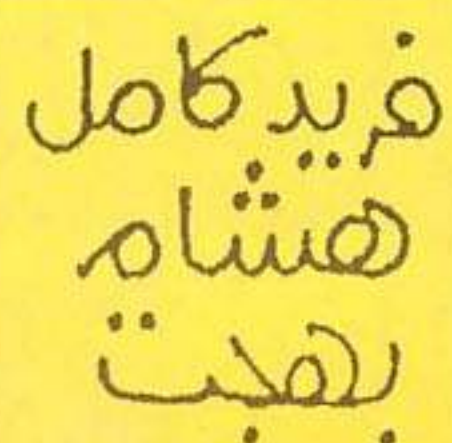 فريد كامل
هشام
بهجت